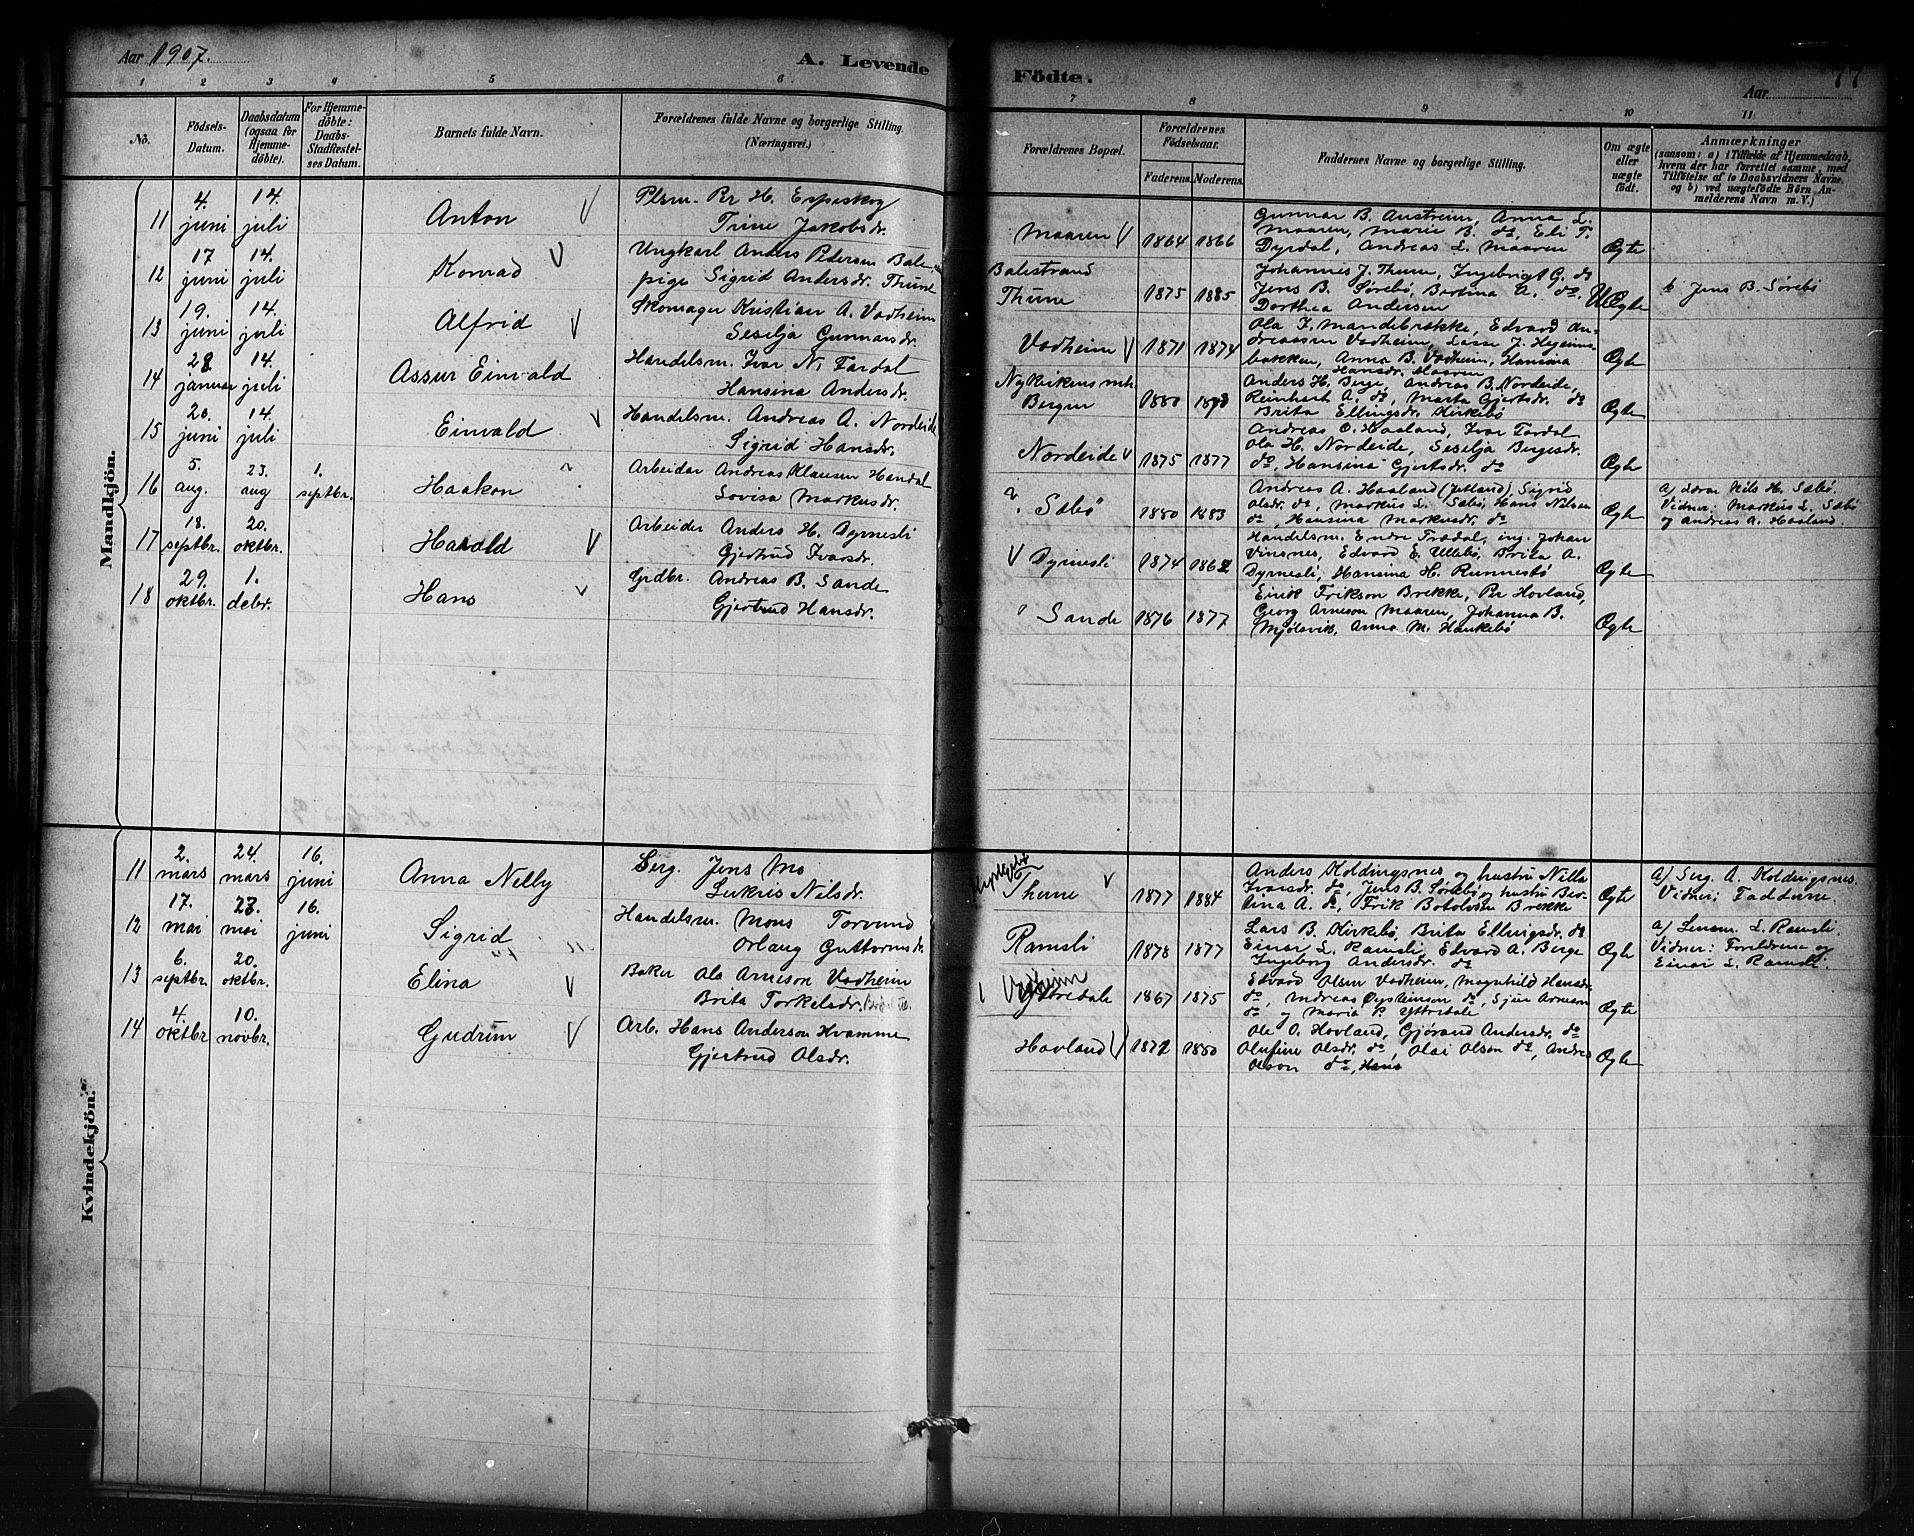 Aar 1907.
A. Levende
Födte.
77
Aar
1 2 3 4 5 6
7 8 9 10 11
No.
Födsels-Datum.
Daabsdatum (ogsaa for Hjemme-döbte).
For Hjemme-döbte: Daabs-Stadfæstel-ses Datum.
Barnets fulde Navn.
Forældrenes fulde Navne og borgerlige Stilling.
(Næringsvei.)
Forældrenes Bopæl.
Forældrenes Födselsaar.
Faderens.
Moderens.
Faddernes Navne og borgerlige Stilling.
Om ægte eller uægte födt.
Anmærkninger
(saasom: a) i Tilfælde af Hjemmedaab, hvem der har forrettet samme, med Tilföielse af to Daabsvidners Navne, og b) ved uægtefödte Börn An-melderens Navn m. V.)
Mandkjön.
11 4. juni 14. juli Anton V
Plsm. Pr H. Espeskog
Trine Jakobsdr.
Maaren V 1864 1866
Gunnar B. Austreim, Anna L.
Maaren, Marie B. do, Eli T.
Dyrdal, Andreas L. Maaren
Ægte
12 17 juni 14. juli Konrad V
Ungkarl Anders Pedersen Bale
pige Sigrid Andersdr. Thune
Balestrand
Thune 1875 1885
Johannes J. Thune, Ingebrigt G. do
Jens B. Sörebö, Bertina A. do.
Dorthea Andersen
Uægte
b Jens B. Sörebö
13 19. juni 14. juli Alfrid V
Skomager Kristian A. Vadheim
Seselja Gunnarsdr.
Vadheim V 1871 1874
Ola J. Mandebrekke, Edvard An-
dreassen Vadheim, Lasse J.
bakken, Anna B. Vadheim, Hansina
Hansdr. Maaren
Ægte
14 28 januar 14. juli Assur Einvald
Handelsm. Ivar N. Fardal
Hansina Andersdr.
Nykirkens mh.
Bergen 1880
Anders H. Berge, Andreas B. Nordeide,
Reinhart A. do, Marta Gjertsdr. do
Brita Ellingsdr. Kirkebö
Ægte
15 20. juni 14. juli Einvald V
Handelsm. Andreas A. Nordeide
Sigrid Hansdr.
Nordeide V 1875 1877
Andreas O. Haaland, Ivar Fardal
Ola H. Nordeide, Seselja Bergesdr.
do, Hansina Gjertsdr. do
Ægte
16 5. aug. 23. aug 1. septbr. Haakon
Arbeider Andreas Klausen Handal
Lovisa Markusdr.
Sæbö 1880 1883
Andreas A. Haaland (Jetland) Sigrid
Olsdr. do, Markus L. Sæbö, Hans Nilsen
do, Hansina Markusdr. do
Ægte
a) Lærer Nils H. Sæbö.
Vidner: Markus L. Sæbö
og Andreas A. Haaland.
17 18. septbr. 20. oktbr. Harald V
Arbeider Anders H. Dyrnesli
Gjertrud Ivarsdr.
V Dyrnesli 1874 1862
Handelsm. Endre Trædal, ing. Johan
Vinsnes, Edvard E. Ullebö, Brita A.
Dyrnesli, Hansina H. Runnestö
Ægte
18 29. oktbr. 1. debr. Hans V
Grdbr. Andreas B. Sande
Gjertrud Hansdr.
Sande 1876 1877
Eirik Erikson Brekke, Per Hovland,
Georg Arneson Maaren, Johanna B.
Mjölsvik, Anna M. Haukebö
Ægte
Kvindekjön.
11 2. mars 24. mars 16. juni Anna Nelly
Serg. Jens Mo
Lukris Nilsdr.
Thune V 1877 1884
Anders Koldingsnes og hustru Nilla
Ivarsdr. do, Jens B. Sörebö og hustru Ber-
tina A. do, Erik Botolvsen Brekke
Ægte
a) Serg. A. Koldingsnes.
Vidner: Fadderne.
12 17. mai 23. mai 16. juni Sigrid
Handelsm. Mons Torvund
Orlaug Guttormsdr.
Ramsli 1878 1877
Lars B. Kirkebö Brita Ellingsdr. do
Einar L. Ramsli, Edvard A. Berge
Ingeborg Andersdr. do
Ægte
a) Lensm. L. Ramsli.
Vidner: Foreldrene og
Einar L. Ramsli.
13 6. septbr. 20. oktbr. Elina V
Baker Ola Arneson Vadheim
Brita Torkelsdr.
Vadheim
Ytredale 1867 1875
Edvard Olsen Vadheim, Magnhild Hansdr.
do, Andreas Øysteinson do, Sjur Arneson
do og Maria P. Yttredale
Ægte
14 4. oktbr. 10. novbr. Gudrun V
Arb. Hans Anderson Kvamme
Gjertrud Olsdr.
Hovland V 1872 1880
Ole O. Hovland, Gjörand Andersdr. do
Olufine Olsdr. do, Olai Olson do, Andres
Olson do, Hans
Ægte